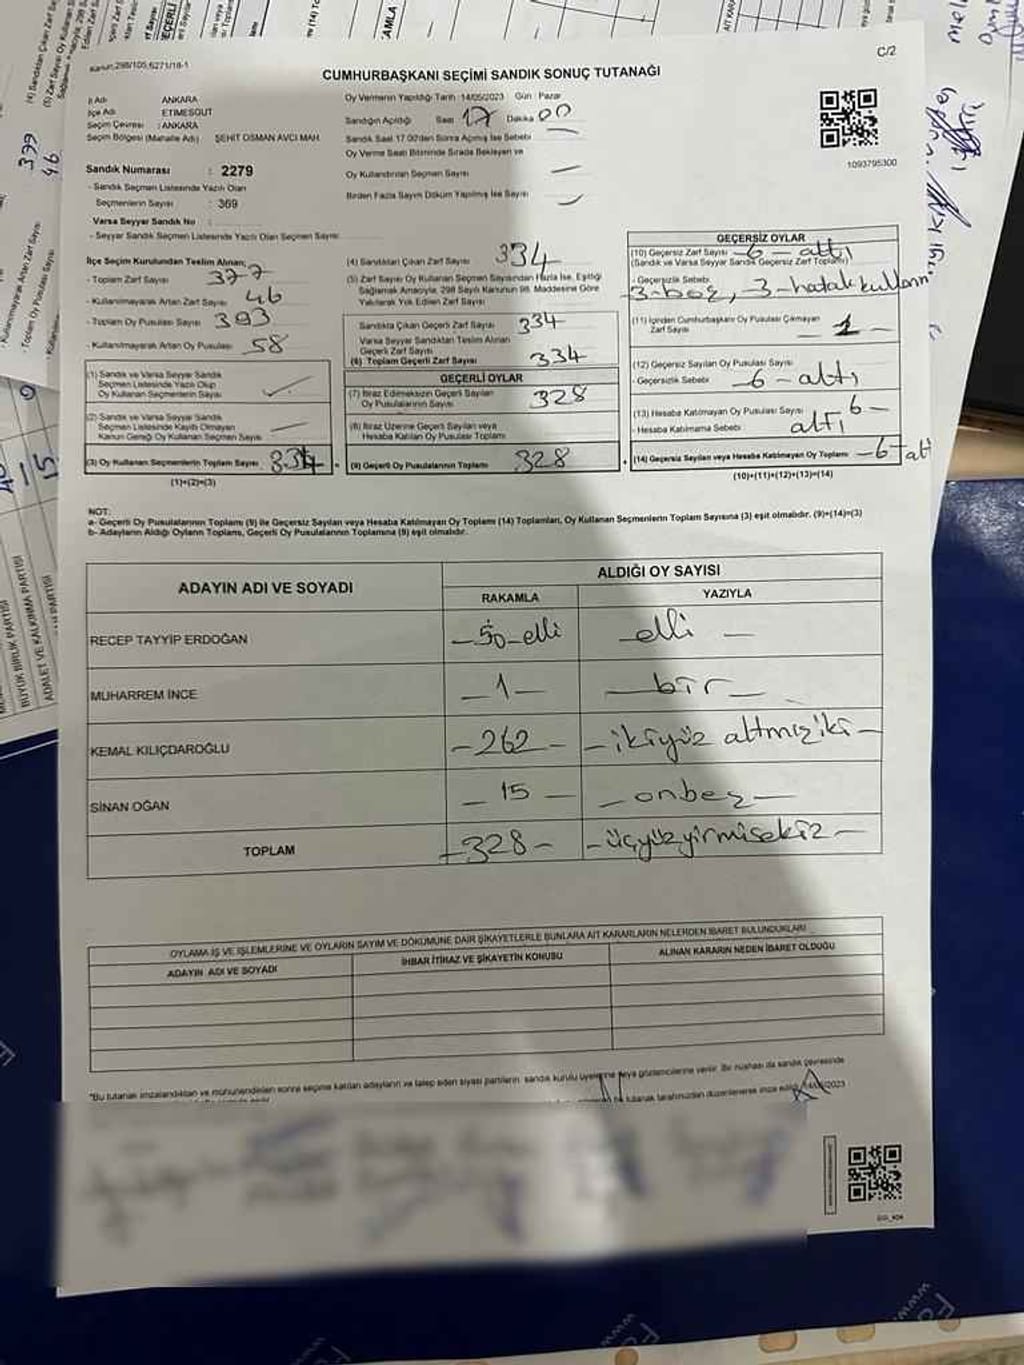 C/2
Kanun:298/105,6271/18-1
CUMHURBAŞKANI SEÇİMİ SANDIK SONUÇ TUTANAĞI
İl Adı ANKARA
İlçe Adı ETİMESGUT
Seçim Çevresi : ANKARA
Seçim Bölgesi (Mahalle Adı) ŞEHİT OSMAN AVCI MAH.
Sandık Numarası : 2279
- Sandık Seçmen Listesinde Yazılı Olan
Seçmenlerin Sayısı : 369
Varsa Seyyar Sandık No
- Seyyar Sandık Seçmen Listesinde Yazılı Olan Seçmen Sayısı
Oy Vermenin Yapıldığı Tarih :14/05/2023 Gün : Pazar
Sandığın Açıldığı Saat 17 Dakika 00
Sandık Saat 17.00'den Sonra Açılmış İse Sebebi
Oy Verme Saati Bitiminde Sırada Bekleyen ve
Oy Kullandırılan Seçmen Sayısı
Birden Fazla Sayım Döküm Yapılmış İse Sayısı
1093795300
İlçe Seçim Kurulundan Teslim Alınan;
- Toplam Zarf Sayısı 377
- Kullanılmayarak Artan Zarf Sayısı 46
- Toplam Oy Pusulası Sayısı 393
- Kullanılmayarak Artan Oy Pusulası 58
(1) Sandık ve Varsa Seyyar Sandık
Seçmen Listesinde Yazılı Olup
Oy Kullanan Seçmenlerin Sayısı
(2) Sandık ve Varsa Seyyar Sandık
Seçmen Listesinde Kayıtlı Olmayan
Kanun Gereği Oy Kullanan Seçmen Sayısı
(3) Oy Kullanan Seçmenlerin Toplam Sayısı 334
(1)+(2)=(3)
(4) Sandıktan Çıkan Zarf Sayısı 334
(5) Zarf Sayısı Oy Kullanan Seçmen Sayısından Fazla İse, Eşitliği
Sağlamak Amacıyla, 298 Sayılı Kanunun 98. Maddesine Göre
Yakılarak Yok Edilen Zarf Sayısı
Sandıkta Çıkan Geçerli Zarf Sayısı 334
Varsa Seyyar Sandıktan Teslim Alınan
Geçerli Zarf Sayısı
(6) Toplam Geçerli Zarf Sayısı 334
GEÇERLİ OYLAR
(7) İtiraz Edilmeksizin Geçerli Sayılan
Oy Pusulalarının Sayısı 328
(8) İtiraz Üzerine Geçerli Sayılan veya
Hesaba Katılan Oy Pusulası Toplamı
(9) Geçerli Oy Pusulalarının Toplamı 328
GEÇERSİZ OYLAR
(10) Geçersiz Zarf Sayısı 6 - altı
(Sandık ve Varsa Seyyar Sandık Geçersiz Zarf Toplamı)
- Geçersizlik Sebebi
3-boş, 3-hatalı kullanım
(11) İçinden Cumhurbaşkanı Oy Pusulası Çıkmayan
Zarf Sayısı
(12) Geçersiz Sayılan Oy Pusulası Sayısı
- Geçersizlik Sebebi 6 - altı
(13) Hesaba Katılmayan Oy Pusulası Sayısı 6 -
- Hesaba Katılmama Sebebi altı
(14) Geçersiz Sayılan veya Hesaba Katılmayan Oy Toplamı - 6 - altı
(10)+(11)+(12)+(13)=(14)
NOT:
a- Geçerli Oy Pusulalarının Toplamı (9) ile Geçersiz Sayılan veya Hesaba Katılmayan Oy Toplamı (14) Toplamları, Oy Kullanan Seçmenlerin Toplam Sayısına (3) eşit olmalıdır. (9)+(14)=(3)
b- Adayların Aldığı Oyların Toplamı, Geçerli Oy Pusulalarının Toplamına (9) eşit olmalıdır.
ADAYIN ADI VE SOYADI
ALDIĞI OY SAYISI
RAKAMLA YAZIYLA
RECEP TAYYİP ERDOĞAN - 50 - elli - elli -
MUHARREM İNCE - 1 - - bir -
KEMAL KILIÇDAROĞLU - 262 - - ikiyüz altmışiki -
SİNAN OĞAN - 15 - - onbeş -
TOPLAM - 328 - - üçyüzyirmisekiz -
OYLAMA İŞ VE İŞLEMLERİNE VE OYLARIN SAYIM VE DÖKÜMÜNE DAİR ŞİKAYETLERLE BUNLARA AİT KARARLARIN NELERDEN İBARET BULUNDUKLARI
ADAYIN ADI VE SOYADI
İHBAR İTİRAZ VE ŞİKAYETİN KONUSU
ALINAN KARARIN NEDEN İBARET OLDUĞU
"Bu tutanak imzalandıktan ve mühürlendikten sonra seçime katılan adayların ve talep eden siyasi partilerin sandık kurulu üyelerine veya gözlemcilerine verilir. Bir nüshası da sandık çevresinde
tutanak tarafımızdan düzenlenerek imza edildi. 14/05/2023
399
46
BÜYÜK BİRLİK PARTİSİ
ADALET VE KALKINMA PARTİSİ
15